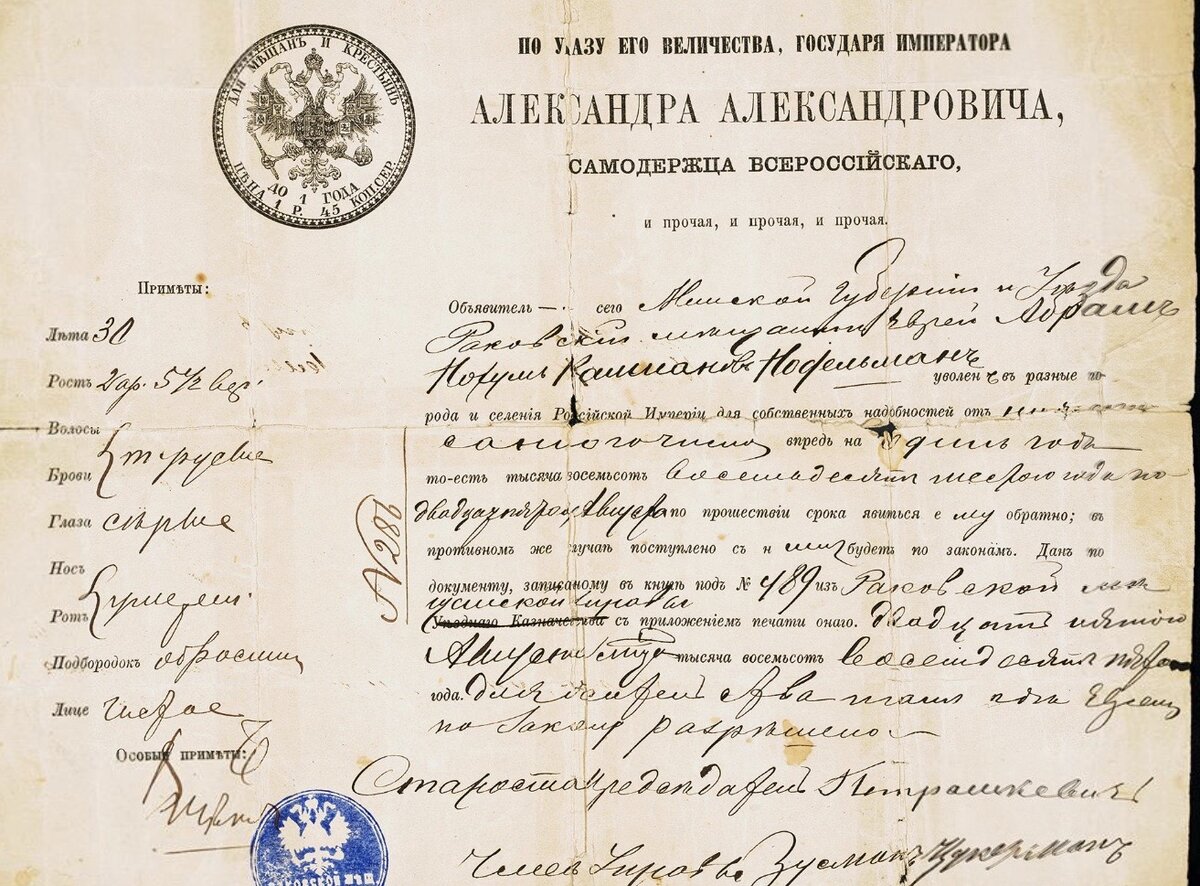 ДЛЯ МѢЩАНЪ И КРЕСТЬЯНЪ
ДО 1 ГОДА
ЦѢНА 1 Р. 45 КОП. СЕР.
ПО УКАЗУ ЕГО ВЕЛИЧЕСТВА, ГОСУДАРЯ ИМПЕРАТОРА
АЛЕКСАНДРА АЛЕКСАНДРОВИЧА,
САМОДЕРЖЦА ВСЕРОССІЙСКАГО,
и прочая, и прочая, и прочая.
Примѣты:
Лѣта 30
Ростъ 2 ар. 5 1/2 вер.
Волосы
Брови
Глаза сѣрые
Носъ
Ротъ
Подбородокъ
Лице чистое
Особыя примѣты:
N 286
Объявитель сего Минской Губерніи и Уѣзда
Раковскій мѣщанинъ Еврей Абрамъ
Нохумъ Нофельманъ уволенъ въ разные го
рода и селенія Россійской Имперіи для собственныхъ надобностей отъ
впредь на одинъ годъ
то-есть тысяча восемьсотъ восемьдесятъ шестого года по
Августа по прошествіи срока явиться ему обратно; въ
противномъ же случаѣ поступлено съ нимъ будетъ по законамъ. Данъ по
документу, записанному въ книгѣ подъ № 489 изъ Раковской мѣ
щанской Управы
Уѣзднаго Казначейства съ приложеніемъ печати онаго. двадцать пятого
Августа тысяча восемьсотъ восемьдесятъ пятого
года. для жительства тамъ гдѣ Евреямъ
по Закону разрѣшено
Староста Предсѣдатель Петрашкевичъ
Членъ Управы Зусманъ Цукерманъ